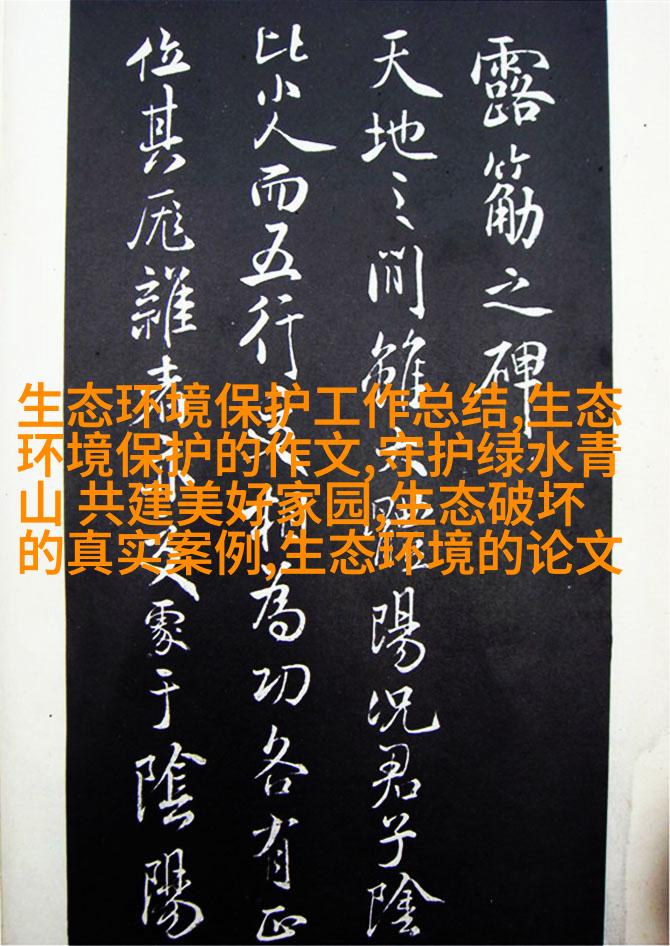 露筋之碑
天地之間雖大體陽況君子陰
比小人而五行更相為功各有正
位其厖雜者亦交處于陰陽
生态环境保护工作总结,生态
环境保护的作文,守护绿水青
山 共建美好家园,生态破坏
的真实案例,生态环境的论文